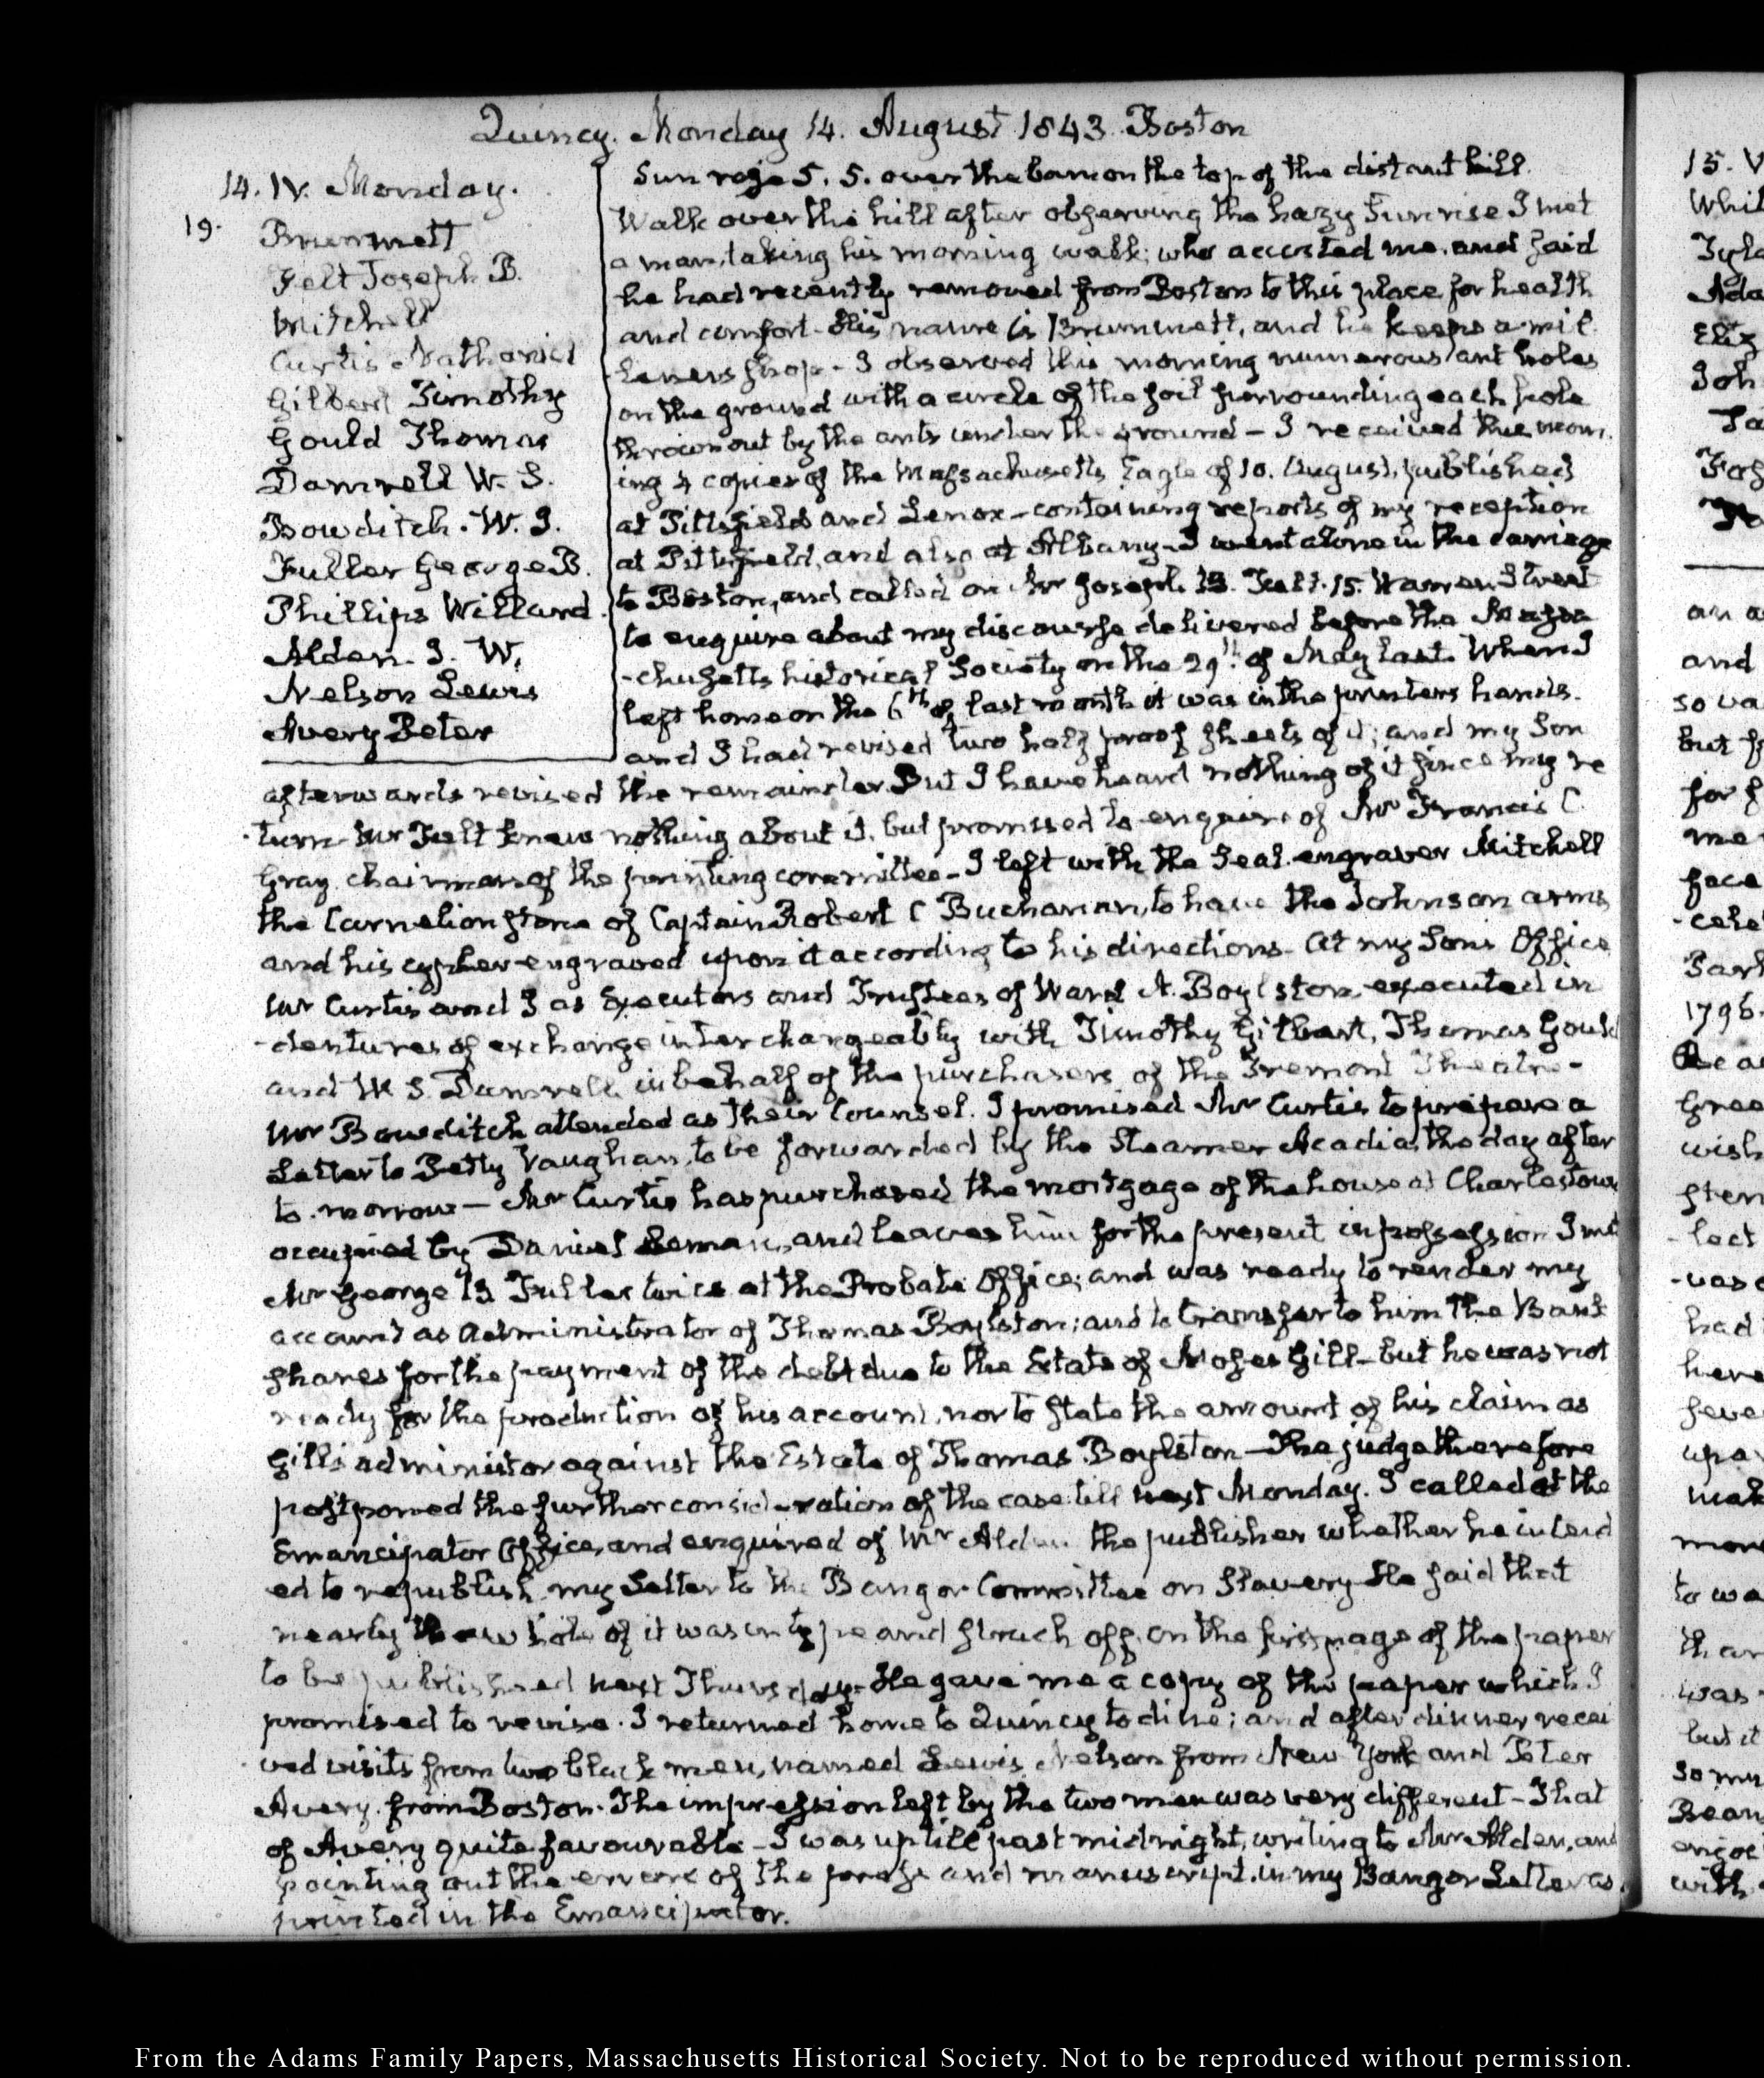 Quincy. Monday 14. August 1843. Boston
14. IV. Monday.
19.
Brummett
Felt Joseph B.
Mitchell
Curtis Nathaniel
Gilbert Timothy
Gould Thomas
Damrell W. S.
Bowditch. W. I.
Fuller George B.
Phillips Willard
Alden. J. W.
Nelson Lewis
Avery Peter
Sun rose 5. 5. over the barn on the top of the distant hill.
Walk over the hill after observing the hazy Sunrise I met
a man, taking his morning walk; who accosted me and said
he had recently removed from Boston to this place for health
and comfort. His name is Brummett, and he keeps a mil
-leners shop - I observed this morning numerous ant holes
on the ground with a circle of the soil surrounding each hole
thrown out by the ants under the ground - I received this morn
ing 4 copies of the Massachusetts Eagle of 10. August, published
at Pittsfield and Lenox - containing reports of my reception
at Pittsfield, and also at Albany - I went alone in the carriage
to Boston, and called on Mr Joseph B. Felt. 15. Warren Street
to enquire about my discourse delivered before the Massa
-chusetts historical Society on the 29th. of May last. When I
left home on the 6th of last month it was in the printers hands.
and I had revised two half proof sheets of it; and my Son
afterwards revised the remainder. But I have heard nothing of it since my re
-turn. Mr Felt knew nothing about it. but promised to enquire of Mr Francis C.
Gray. chairman of the printing committee - I left with the Seal engraver Mitchell
the Carnelion stone of Captain Robert C Buchanan, to have the Johnson arms
and his cypher engraved upon it according to his directions - At my Sons Office
Mr Curtis and I as Executors and Trustees of Ward N. Boylston executed in
-dentures of exchange interchangeably with Timothy Gilbert, Thomas Gould
and W S. Damrell in behalf of the purchasers of the Tremont Theatre -
Mr Bowditch attended as their Counsel. I promised Mr Curtis to prepare a
Letter to Petty Vaughan, to be forwarded by the Steamer Acadia, the day after
to-morrow - Mr Curtis has purchased the mortgage of the house at Charlestown
occupied by Daniel Leman, and leaves him for the present in possession I met
Mr George B Fuller twice at the Probate Office; and was ready to render my
account as Administrator of Thomas Boylston; and to transfer to him the Bank
shares for the payment of the debt due to the Estate of Moses Gill - but he was not
ready for the production of his account, nor to state the amount of his claim as
Gill's administor against the Estate of Thomas Boylston - The judge therefore
postponed the further consideration of the case till next Monday. I called at the
Emancipator Office, and enquired of Mr Alden the publisher whether he intend
ed to republish my Letter to the Bangor Committee on Slavery - He said that
nearly the whole of it was in type and struck off, on the first page of the paper
to be published next Thursday. He gave me a copy of the paper which I
promised to revise. I returned home to Quincy to dine; and after dinner recei
-ved visits from two black men, named Lewis Nelson from New York and Peter
Avery. from Boston. The impression left by the two men was very different - That
of Avery quite favourable - I was up till past midnight, writing to Mr Alden, and
pointing out the errors of the press and manuscript. in my Bangor Letter as
printed in the Emancipator.
From the Adams Family Papers, Massachusetts Historical Society. Not to be reproduced without permission.